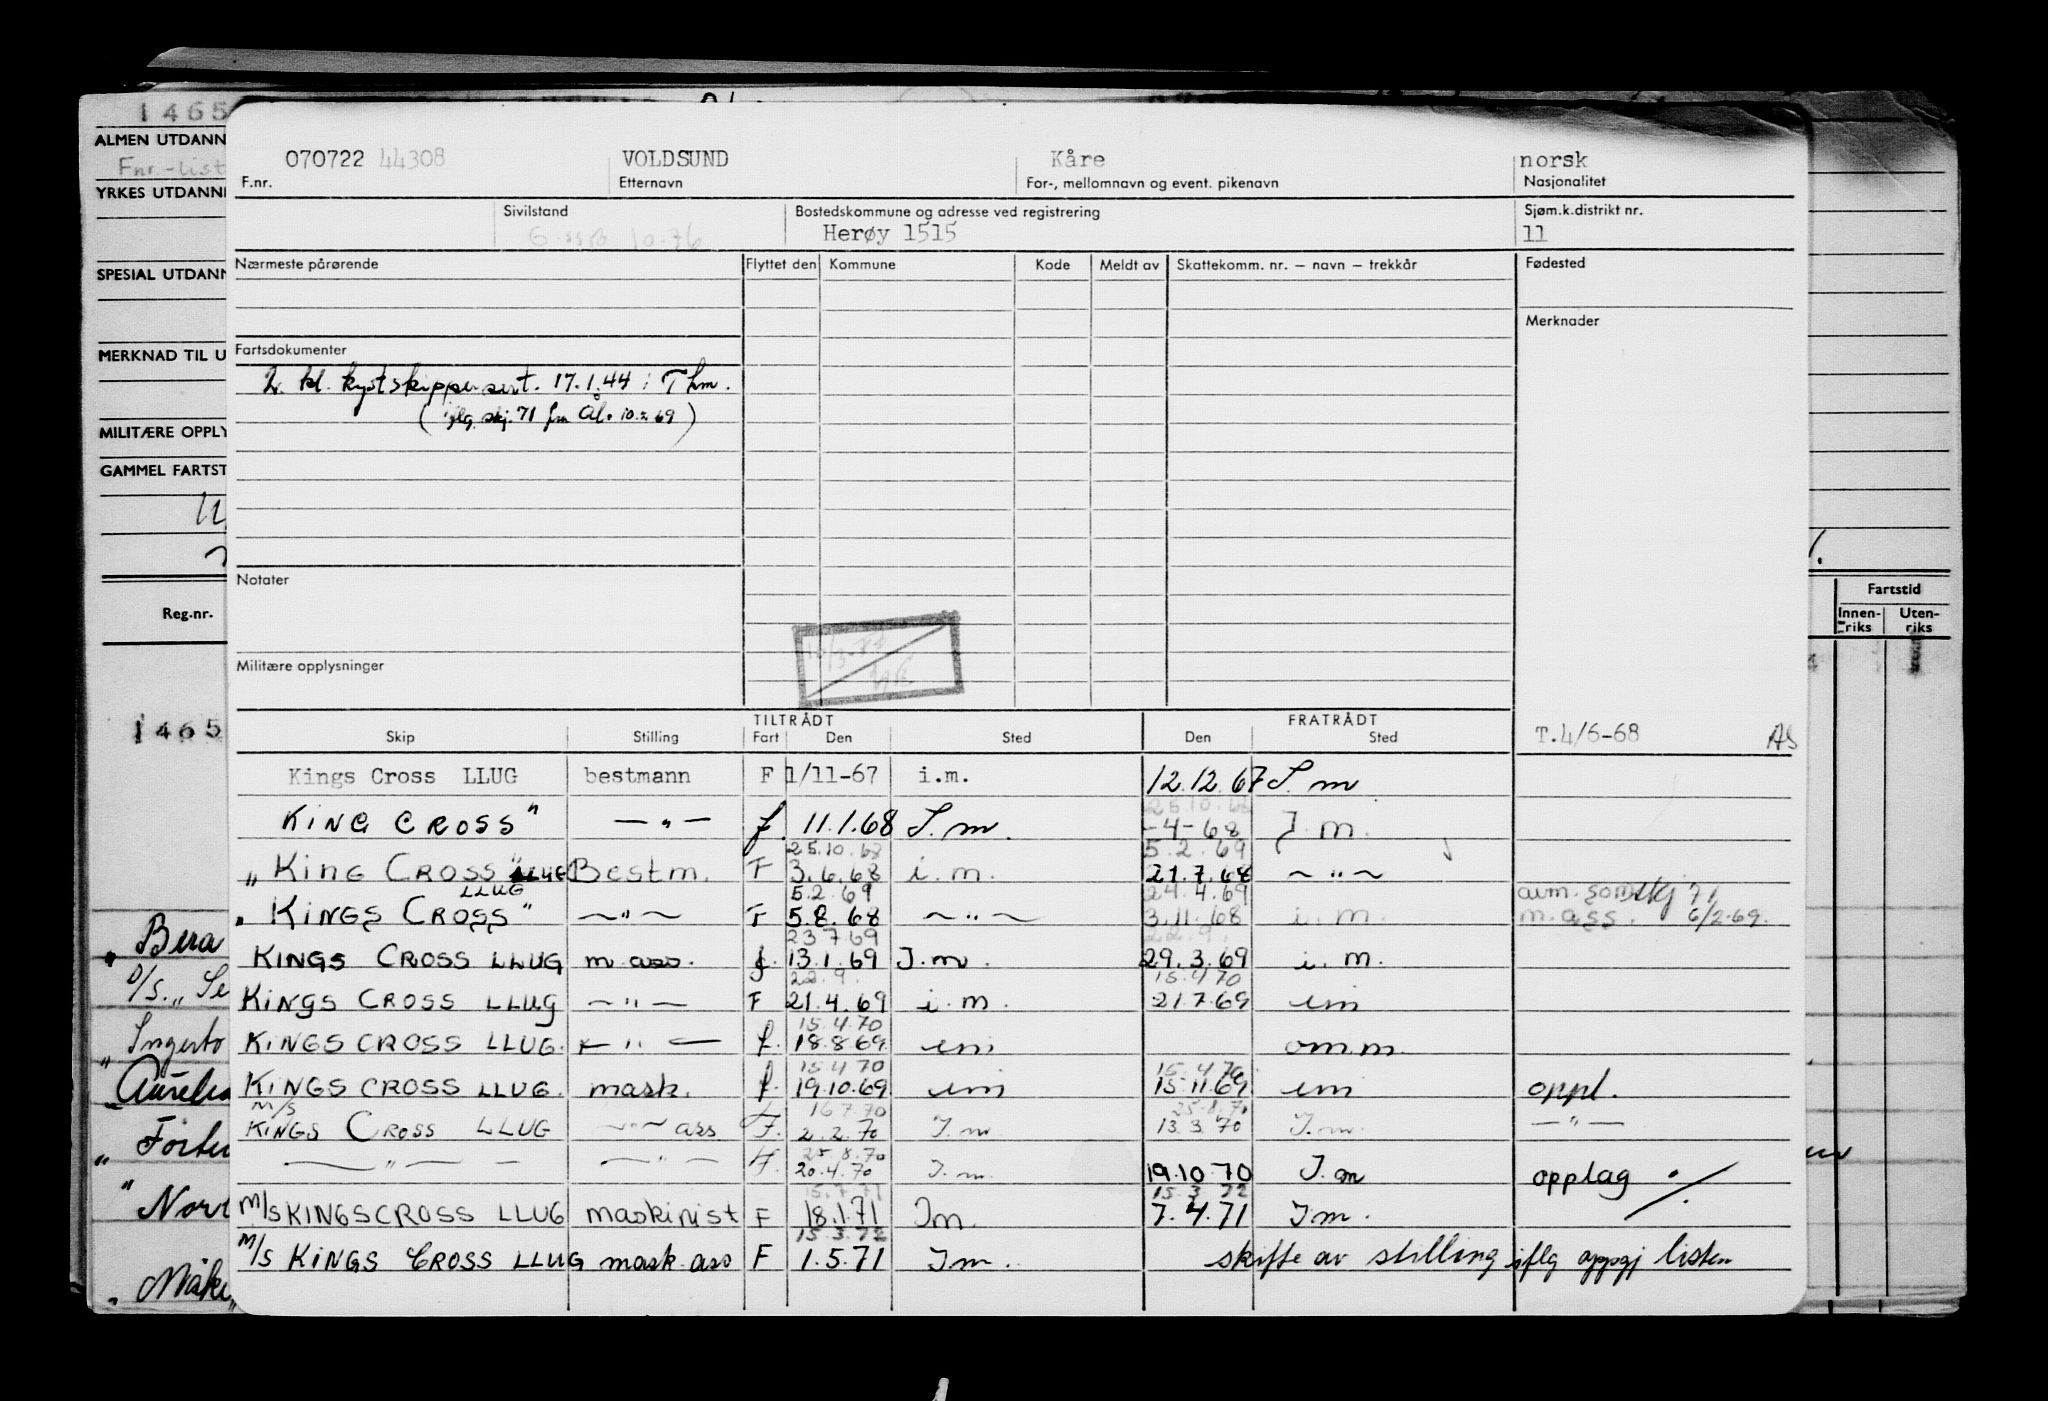 1465
ALMEN UTDANN
Fnr.-list
YRKES UTDANN
SPESIAL UTDANN
MERKNAD TIL U
MILITÆRE OPPLY
GAMMEL FARTST
Reg.nr.
1465
Bera
D/S. „ Se
Ingerto
Aurelia
Norv
070722 44308 VOLDSUND Kåre norsk
F.nr. Etternavn For-, mellomnavn og event. pikenavn Nasjonalitet
Sivilstand Bostedskommune og adresse ved registrering Sjøm.k.distrikt nr.
10.76 Herøy 1515 11
Nærmeste pårørende Flyttet den Kommune Kode Meldt av Skattekomm. nr. – navn – trekkår Fødested
Merknader
Fartsdokumenter
2. kl. kystskippersert. 17.1.44 i Thm.
(iflg. skj. 71 fra Ål. 10.2.69)
Notater
Militære opplysninger
TILTRÅDT FRATRÅDT
Skip Stilling Fart Den Sted Den Sted T.4/6-68 AS
Kings Cross LLUG bestmann F 1/11-67 i.m. 12.12.67 I.m
25.10.68
KING CROSS" —„— f. 11.1.68 I.m. -4-68 I.m.
25.10.68 5.2.69
„KING CROSS" LLUG Bestm. F 3.6.68 i.m. 21.7.68 ~"~
LLUG 5.2.69 24.4.69 anm. som skj 71
„KINGS CROSS" ~"~ F 5.8.68 ~"~ 3.11.68 i.m. m.ass. 6/2-69.
23.7.69 22.9.
KINGS CROSS LLUG m.ass. f. 13.1.69 I.m. 29.3.69 i.m.
22.9. 15.4.70
KINGS CROSS LLUG ~"~ F 21.4.69 i.m. 21.7.69 im
15.4.70
KINGS CROSS LLUG. —"— f. 18.8.69 im omm.
15.4.70 15.4.70
KINGS CROSS LLUG. mask. f. 19.10.69 im 15.11.69 im oppl.
M/S 16.7.70 25.8.70
KINGS CROSS LLUG ~"~ ass F. 2.2.70 I.m 13.3.70 I.m. —"—
25.8.70
—"— — —"— F. 20.4.70 I.m. 19.10.70 I.m opplag ./.
15.7.71 15.3.72
M/S KINGSCROSS LLUG maskinist F 18.1.71 Im. 7.4.71 Im.
15.3.72
M/S KINGS CROSS LLUG mask.ass F 1.5.71 Im. skifte av stilling iflg oppgj listen
Fartstid
Innen-riks Uten-riks